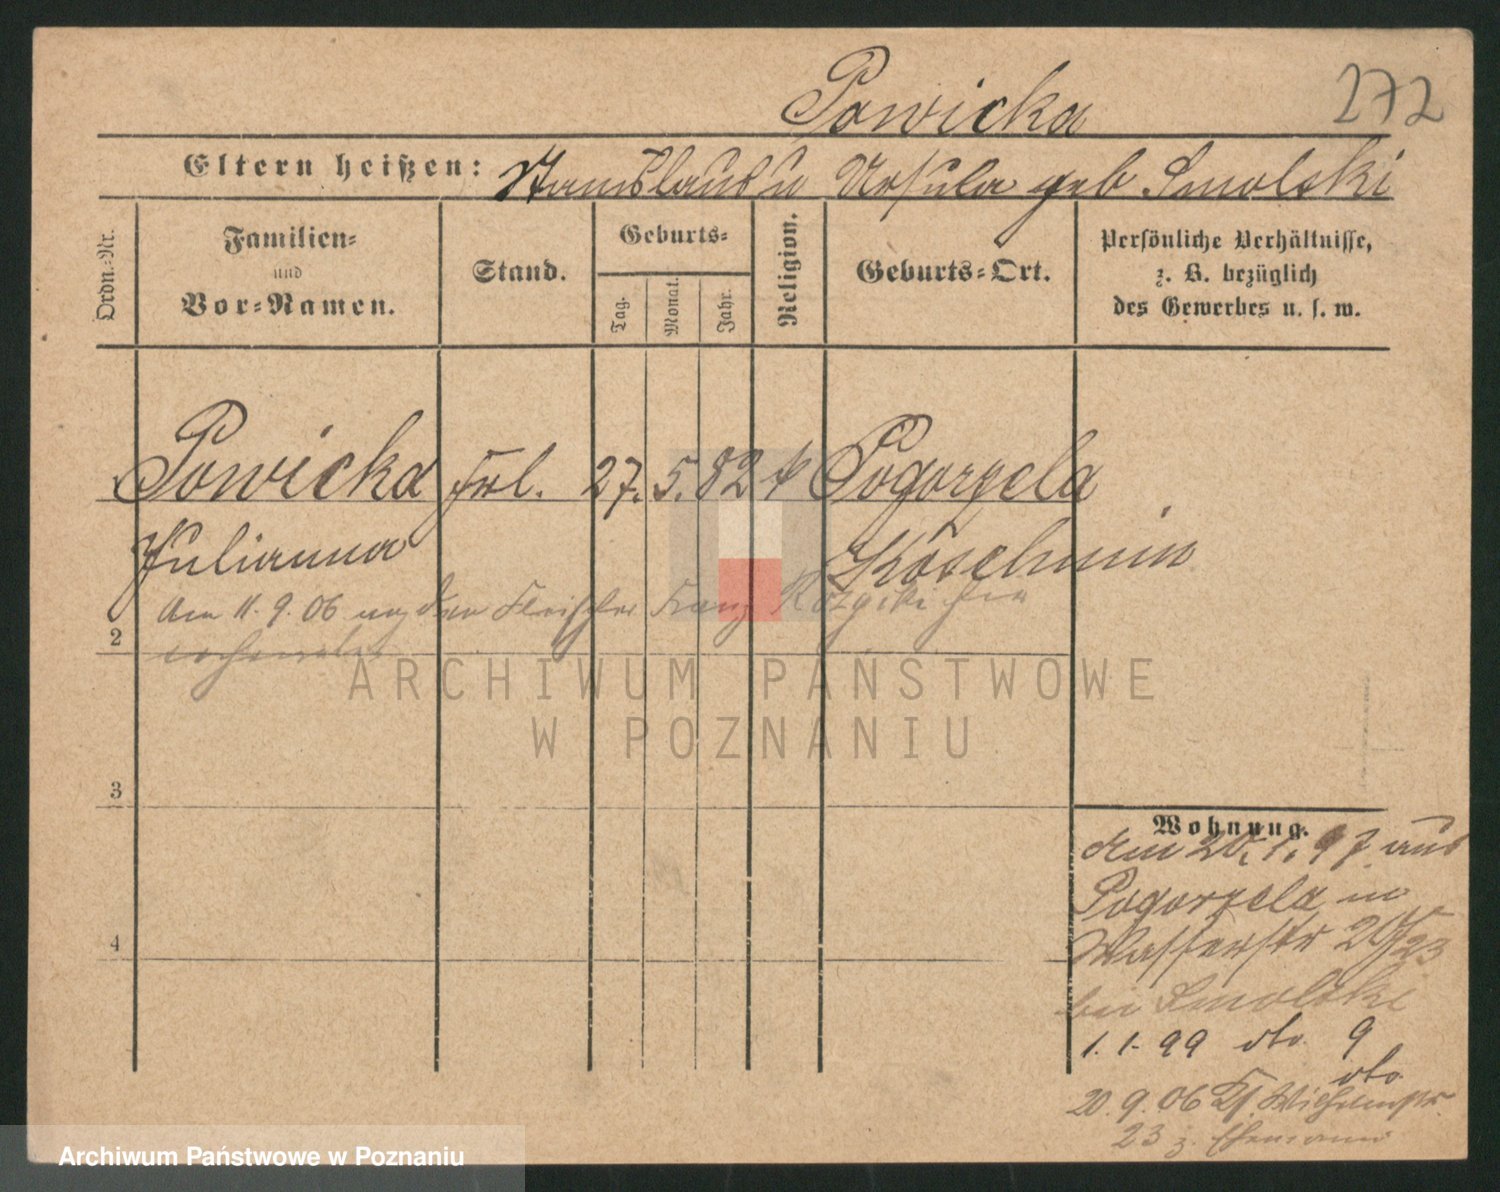 Powicka
272
Eltern heißen: Stanislaus u Ursula geb Smolski
Ordn.-Nr.
Familien-
und
Vor-Namen.
Stand.
Geburts-
Tag.
Monat.
Jahr.
Religion.
Geburts-Ort.
Persönliche Verhältnisse,
z. B. bezüglich
des Gewerbes u. s. w.
Powicka Frl. 27. 5. 82 k Pogorzela
Julianna Koschmin
Am 11.9.06 den Fleischer Franz hier
2
3
4
Wohnung.
den 20.1.97 aus
Pogorzela in
Wasserstr 20/23
bei Smolski
1.1.99 dto 9
dto
20.9.06 Kl. Wilhelmstr.
23 z. Ehemann
ARCHIWUM PAŃSTWOWE
W POZNANIU
Archiwum Państwowe w Poznaniu